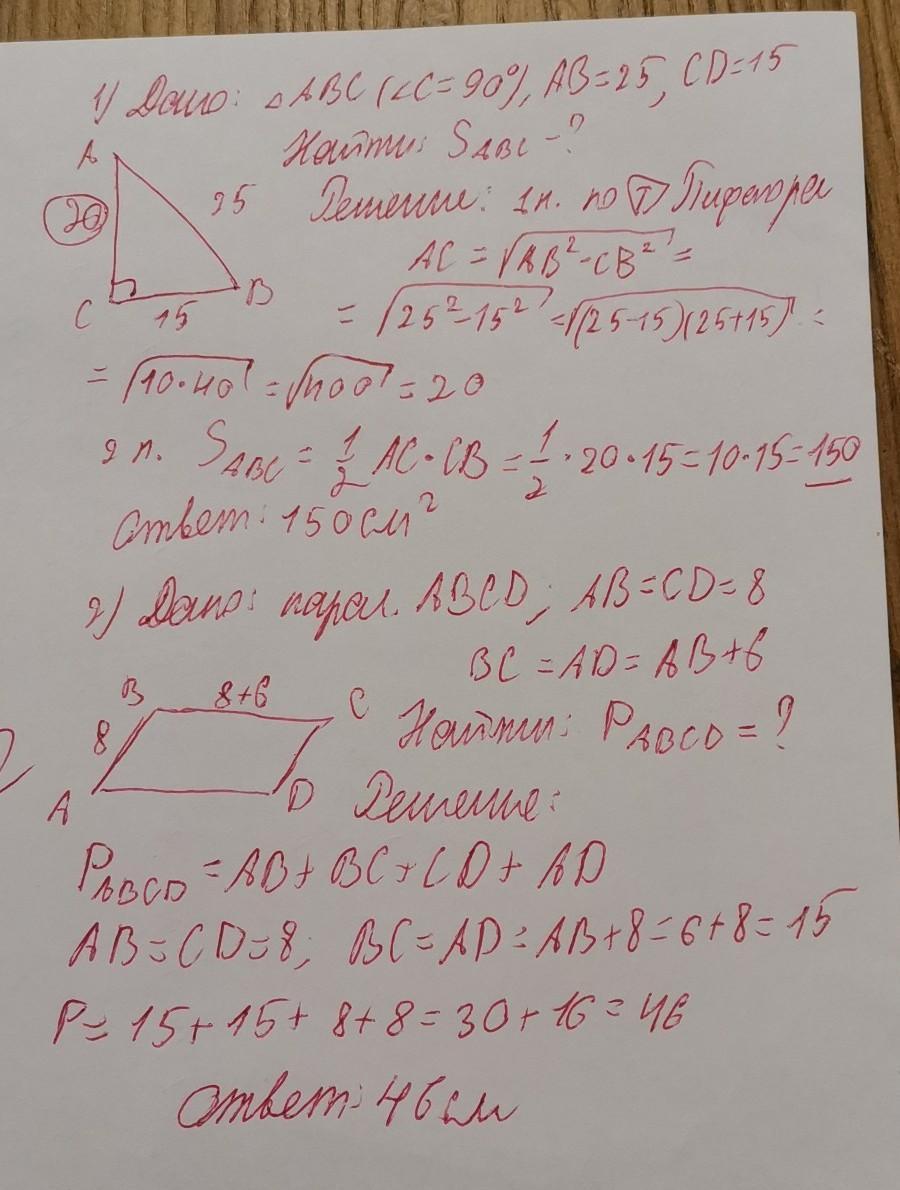 1) Дано: △ABC (∠C=90°), AB=25, CD=15
Найти: S_ABC -?
A
20
25
C
B
15
Решение: 1п. по Т Пифагора
AC = √(AB²-CB²) =
= √(25²-15²) = √((25-15)(25+15)) =
= √(10·40) = √400 = 20
2 п. S_ABC = 1/2 AC·CB = 1/2 ·20·15=10·15=150
Ответ: 150см²
2) Дано: парал. ABCD; AB=CD=8
BC = AD = AB+6
B 8+6 C
8
A D
Найти: P_ABCD = ?
Решение:
P_ABCD = AB+ BC+CD+ AD
AB=CD=8; BC=AD=AB+8=6+8=15
P= 15+15+ 8+8=30+16=46
Ответ: 46см